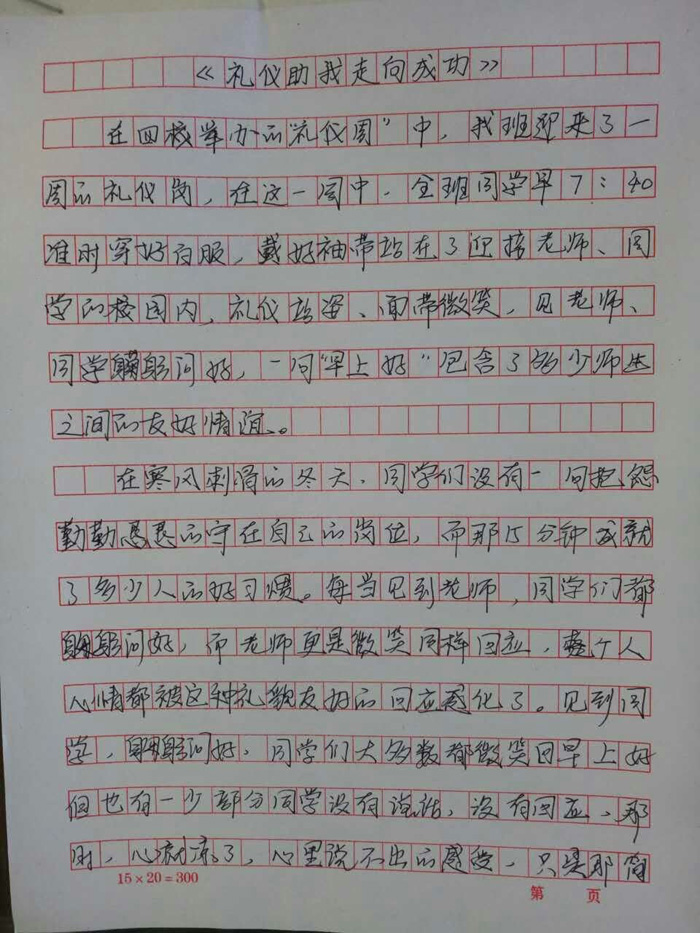 《礼仪助我走向成功》
在四校举办的“礼仪周”中，我班迎来了一
周的礼仪岗，在这一周中，全班同学早7:40
准时穿好白服，戴好袖带站在了迎接老师、同
学的校园内，礼仪站姿、面带微笑，见老师、
同学鞠躬问好，一问“早上好”包含了多少师生
之间的友好情谊。
在寒风刺骨的冬天，同学们没有一句抱怨
勤勤恳恳的守在自己的岗位，而那15分钟成就
了多少人的好习惯。每当见到老师，同学们都
鞠躬问好，而老师更是微笑同样回应，整个人
心情都被这种礼貌友好的回应感化了。见到同
学，鞠躬问好，同学们大多数都微笑回早上好
但也有一少部分同学没有说话，没有回应，那
时，心就凉了，心里说不出的感受，只是那简
15×20=300
第 页